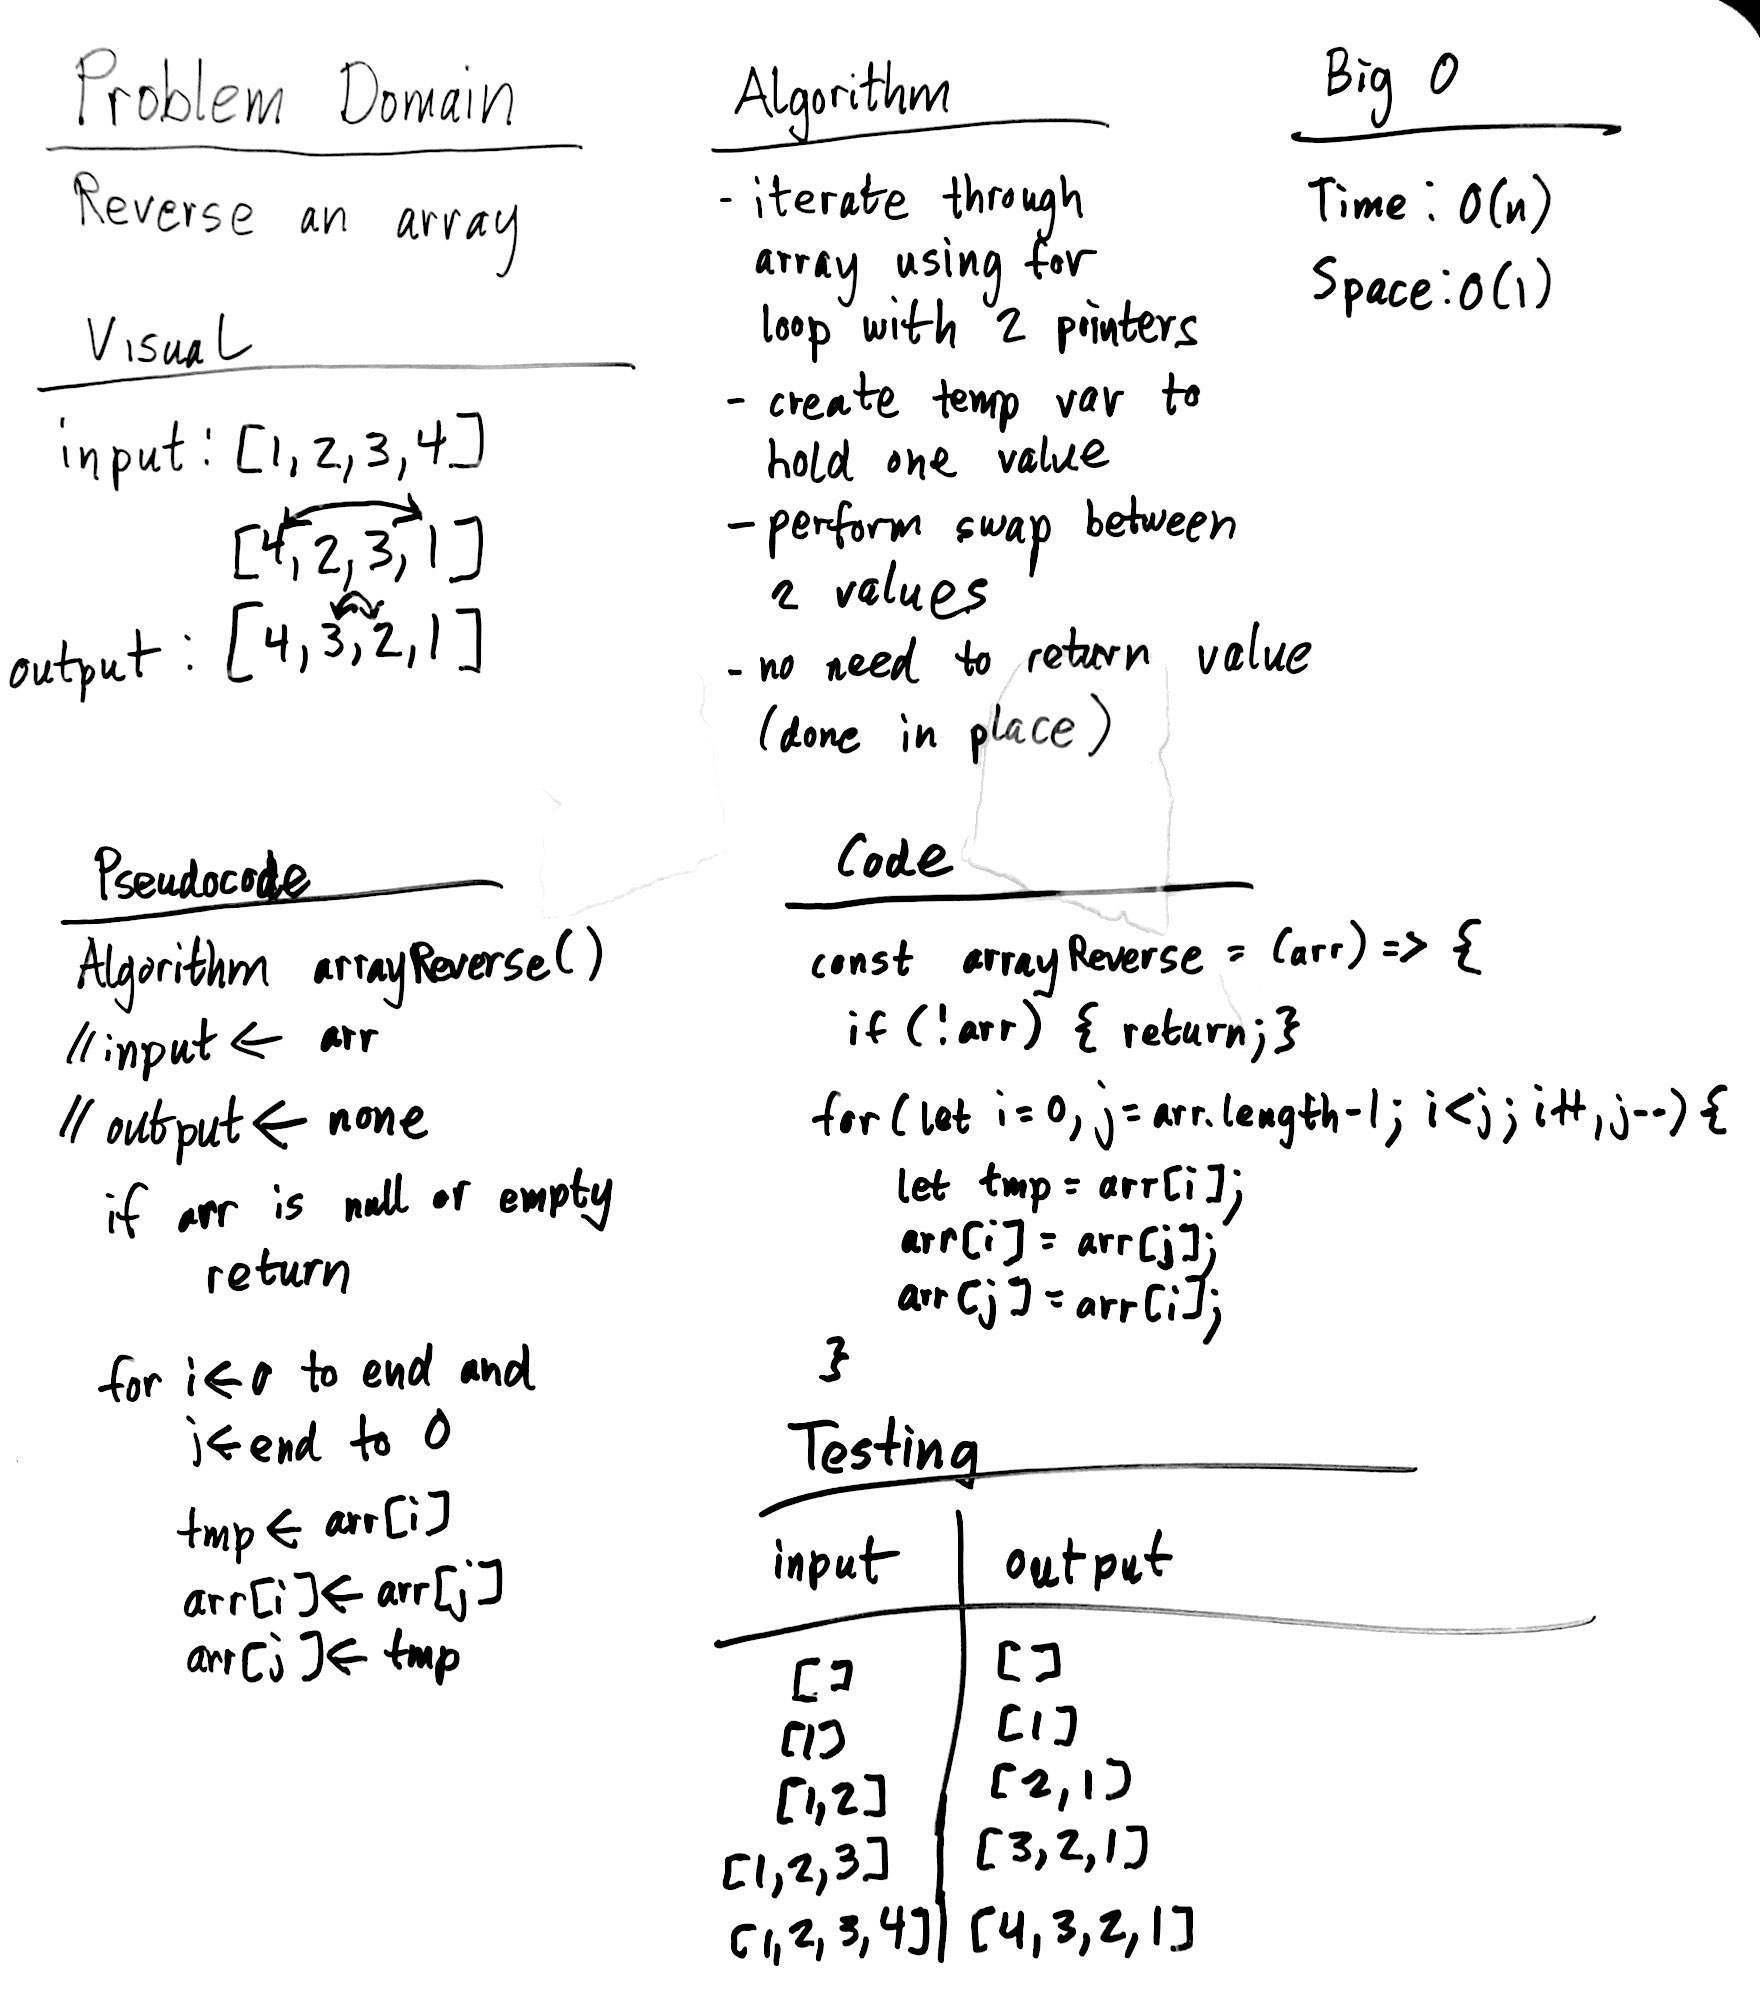 Problem Domain
Reverse an array
Visual
input: [1,2,3,4]
[4,2,3,1]
output: [4,3,2,1]
Algorithm
- iterate through
array using for
loop with 2 pointers
- create temp var to
hold one value
- perform swap between
2 values
- no need to return value
(done in place)
Big O
Time: O(n)
Space: O(1)
Pseudocode
Algorithm arrayReverse()
// input ← arr
// output ← none
if arr is null or empty
return
for i ← 0 to end and
j ← end to 0
tmp ← arr[i]
arr[i] ← arr[j]
arr[j] ← tmp
Code
const arrayReverse = (arr) => {
if (!arr) { return; }
for (let i = 0, j = arr.length-1; i<j; i++, j--) {
let tmp = arr[i];
arr[i] = arr[j];
arr[j] = arr[i];
}
Testing
input output
[] []
[1] [1]
[1,2] [2,1]
[1,2,3] [3,2,1]
[1,2,3,4] [4,3,2,1]